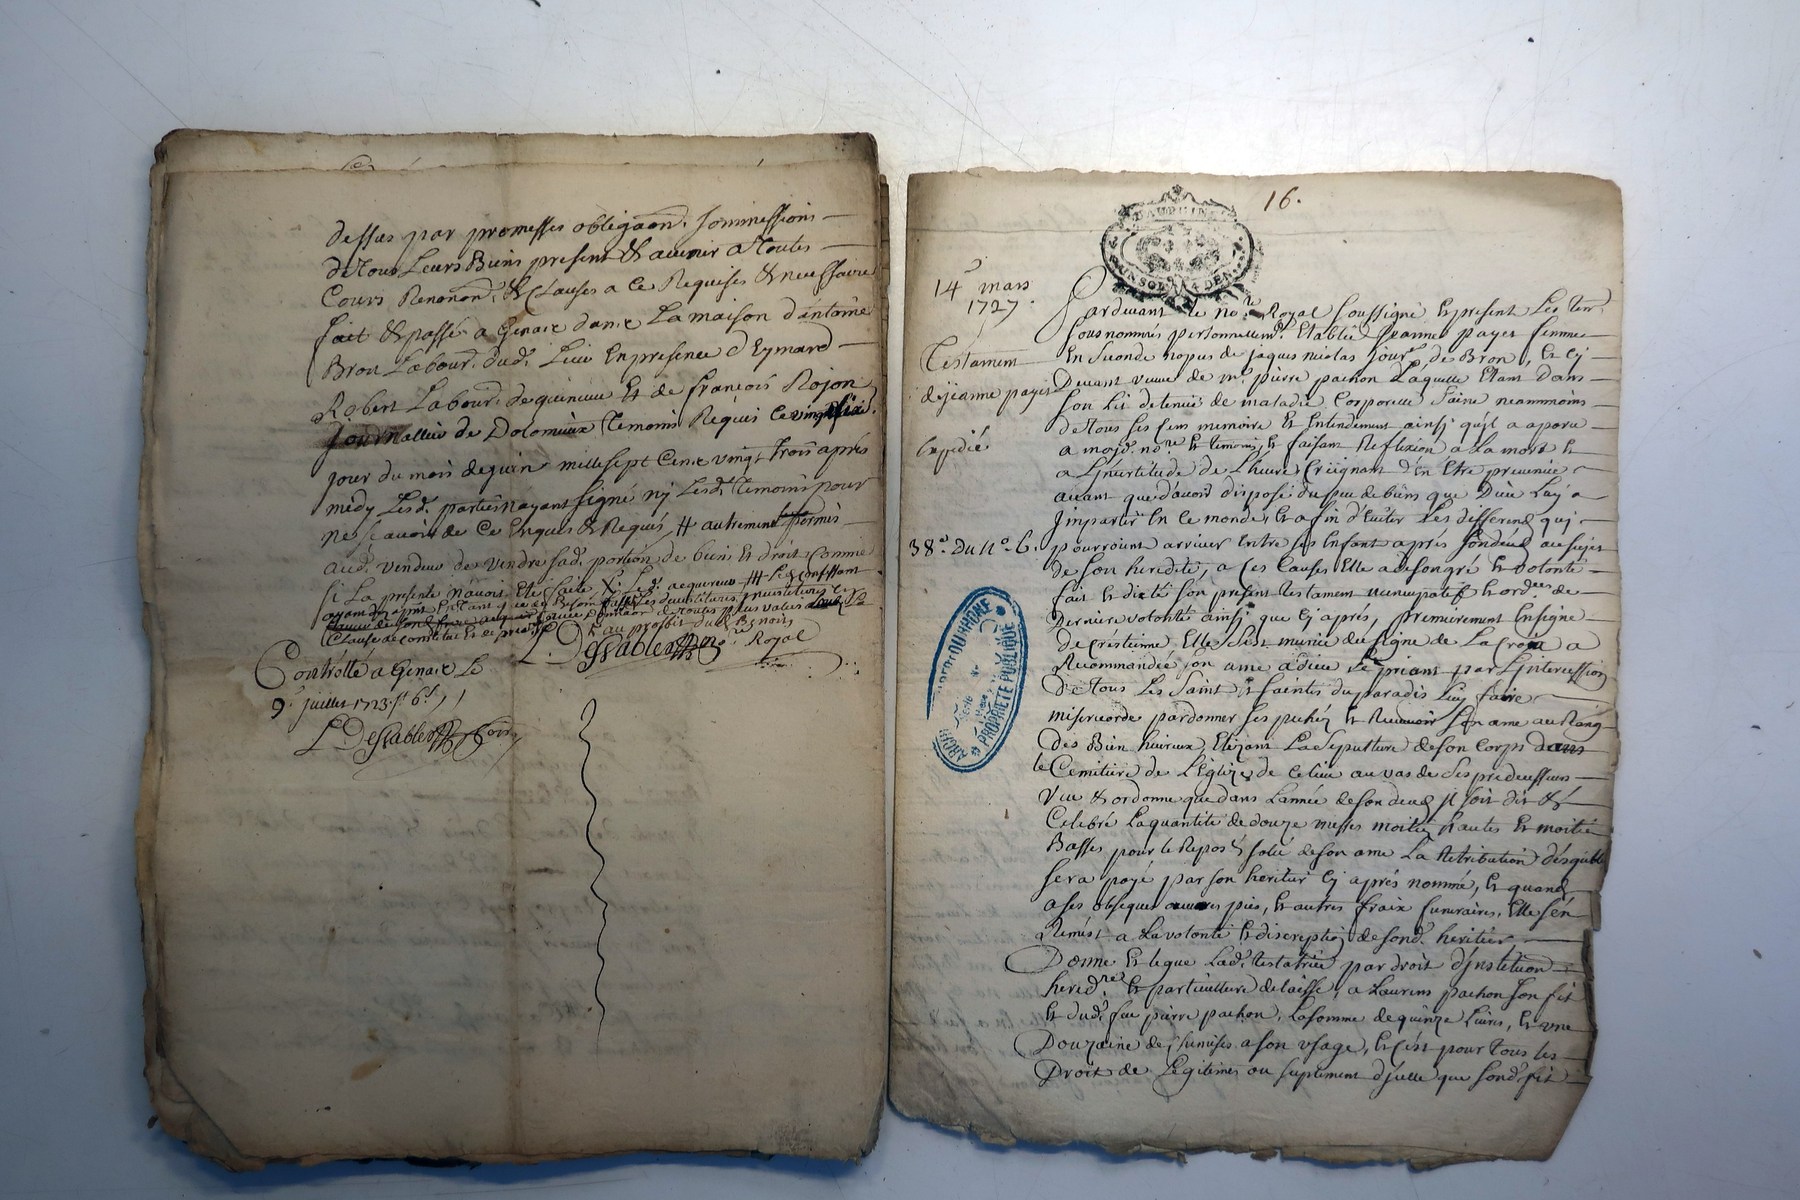 dessus par promesses obligaon. soumissions
de tous Leurs Biens present & avenir a toutes
Cours Renonon. & Clauses a ce Requises & necessaire
fait & passé a Genaz dans La maison d'antoine
Bron Labour. dud. Lieu En presence d'Eymard
Robert Labour. de et de françois Rojon
Journallier de Dolomieux temoins Requis ce vingt
jour du mois de juin mille sept Cent vingt trois apres
medy Lesd. parties n'ayant signé ny Lesd. temoins pour
ne scavoir de ce Enquis & Requis, # autrement permis
aud. vendeur de vendre sad. portion de biens et droit Comme
si La presente n'avoit Eté faite X. Led. acquereur
Clause de constitut et et au proffit dud. Benoit
L. Destables no.re Royal
Controllé a Genaz Le
9. juillet 1723. rt 6 s.
L Destables
16.
DAUPHINÉ
UN SOL 4 DEN.
14e mars
1727.
Testament
de jeanne payet
Expedié
38e. Du n°. 6.
ARCHIVES DU RHONE
PROPRIETE PUBLIQUE
Pardevant le no.re Royal soussigné et present Les tem.
sousnommés personnellem.t Etablie Jeanne payet femme
En seconde nopces de jaques nicolas jour.r de Bron, et cy
Devant veuve de m.e pierre pachon Laquelle Etant dans
son Lit detenue de maladie Corporelle saine neammoins
de tous ses sens memoire et Entendement ainsi qu'il a aparu
a mojd. no.re et temoins, et faisant Reflexion a La mort et
a L'jncertitude de L'heure Creignant d'en Etre prevenüe
avant que d'avoir disposé du peu de biens que Dieu Luy a
jmpartit En ce monde, et afin d'Eviter Les differend qui
pourroient arriver Entre ses Enfant aprés son deud au sujet
de son heredité, a ces Causes Elle a de son gré et volonté
fait et dicté son present testament nuncupatif et ord.re de
Derniere volonté ainsi que cy aprés, premierement Enseigne
de Crestienne Elle s'est munie du signe de La Croix a
Recommandée son ame a dieu Le priant par L'jntercession
De tous Les Saint et saintes du paradis Luy faire
misericorde pardonner ses pechéz et Recevoir son ame au Rang
des Bien heureux Elizant La sepulture de son Corps dans
le Cemitiere de L'Eglize de Ce lieu au vas de ses predecesseurs
Veu & ordonne que dans L'année de son deud jl soit dit &
Celebré La quantité de douze messes moitié hautes et moitié
Basses pour le Repos & salu de son ame La Retribution desquelles
sera payé par son heritier cy aprés nommé, et quand
a ses obseques œuvres pies, et autres fraix funeraires, Elle s'en
Remest a La volonté et discreption de sond. heritier
Donne et legue Lad. testatrice par droit d'jnstitution
hered.re et particulliere delaisse, a Laurens pachon son fils
et dud. feu pierre pachon, La somme de quinze Livres, et une
Douzaine de chemises a son usage, et c'est pour tous les
Droit de Legitimes ou suplement d'jcelle que sond. fils